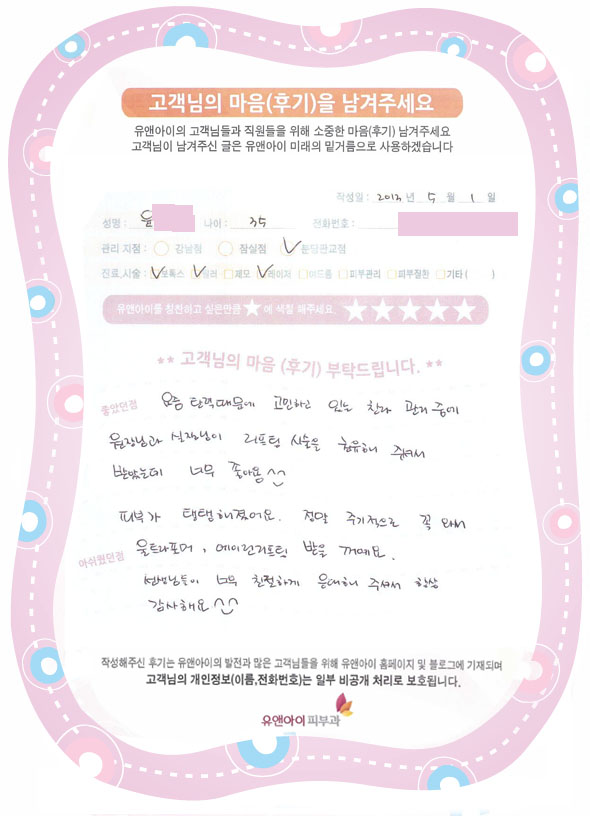 고객님의 마음(후기)을 남겨주세요
유앤아이의 고객님들과 직원들을 위해 소중한 마음(후기) 남겨주세요
고객님이 남겨주신 글은 유앤아이 미래의 밑거름으로 사용하겠습니다
작성일 : 2013 년 5 월 1 일
성명 : 윤 나이 : 35 전화번호 :
관리 지점 : 강남점 잠실점 분당판교점
진료.시술 : 보톡스 필러 제모 레이저 여드름 피부관리 피부질환 기타 ( )
유앤아이를 칭찬하고 싶은만큼 ★ 에 색칠 해주세요. ★★★★★
★★ 고객님의 마음 (후기) 부탁드립니다. ★★
좋았던점 요즘 탄력때문에 고민하고 있는 찰나 관리 중에
원장님과 실장님이 리프팅 시술을 권유해 주셔서
받았는데 너무 좋아요 ^^
피부가 탱탱해졌어요. 정말 주기적으로 꼭 와서
아쉬웠던점 울트라포머, 에이런리프팅 받을 꺼예요.
선생님들이 너무 친절하게 응대해 주셔서 항상
감사해요 ^^
작성해주신 후기는 유앤아이의 발전과 많은 고객님들을 위해 유앤아이 홈페이지 및 블로그에 기재되며
고객님의 개인정보(이름,전화번호)는 일부 비공개 처리로 보호됩니다.
유앤아이피부과